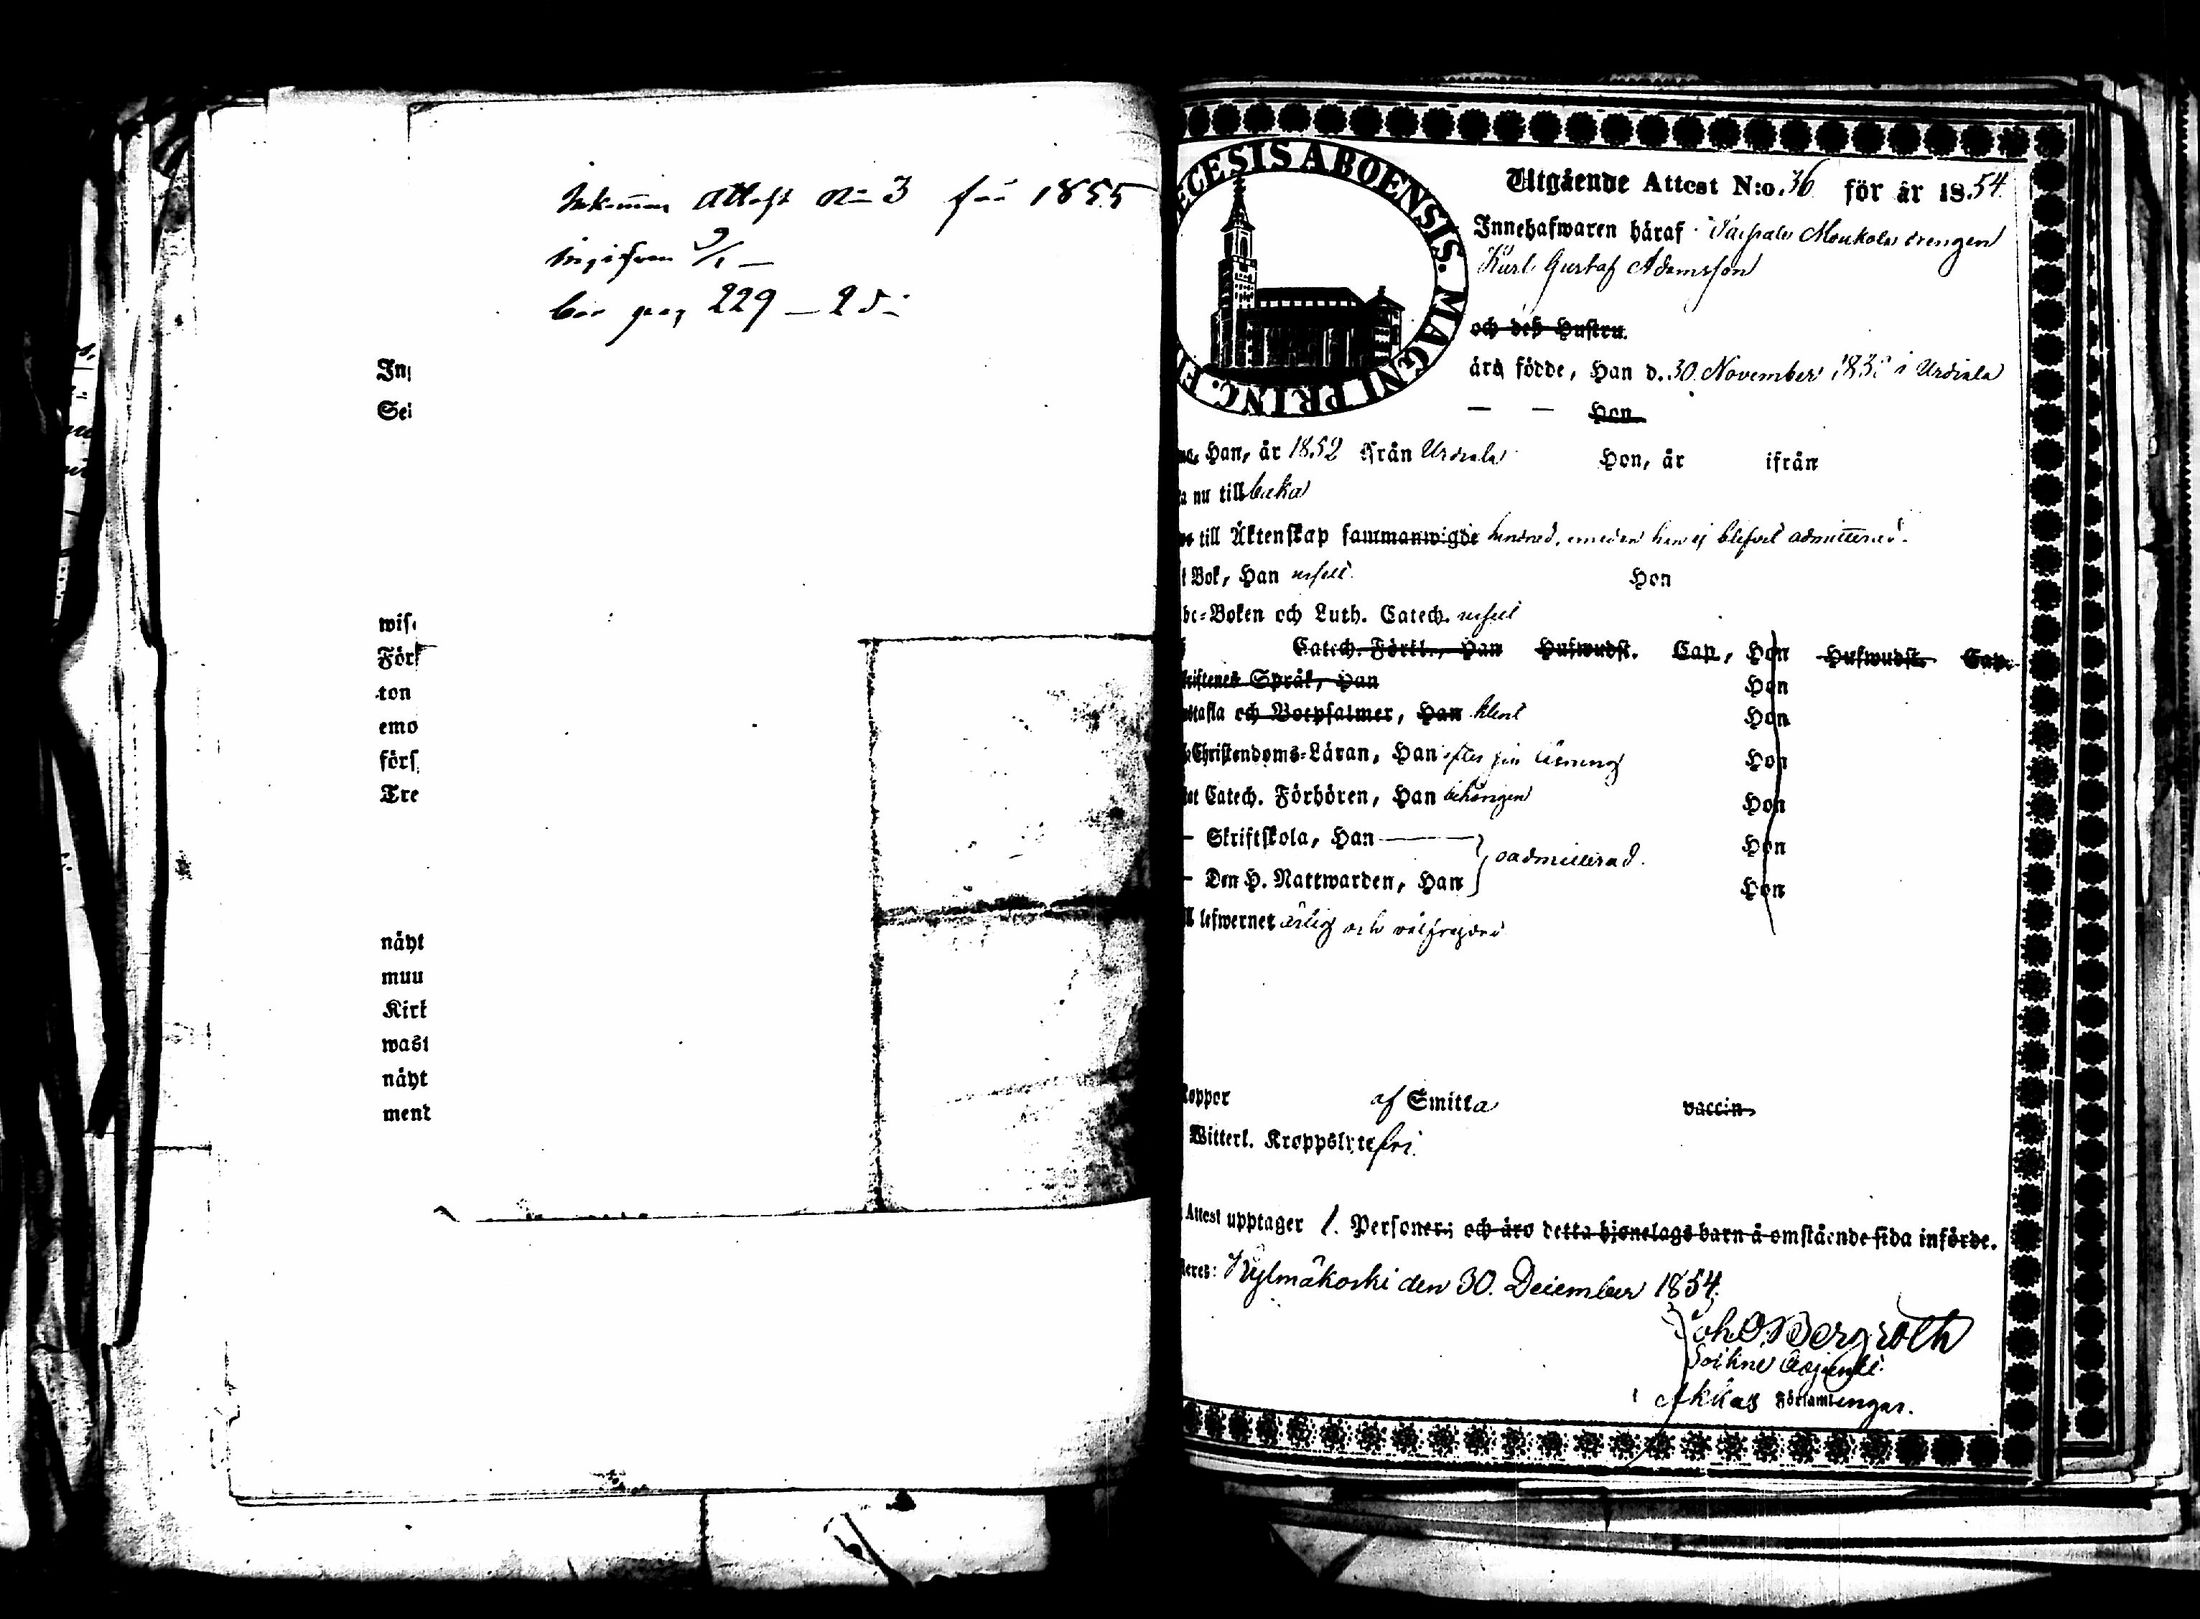 Inkommen Attest No 3 för 1855
ingifven 9/1 —
bör pag 229 —
In
Sei
wis
För
ton
emo
förs
Tre
näyt
muu
Kirk
wast
näyt
ment
ECESIS ABOENSIS. MAGNI PRINC. F
Utgående Attest N:o. 36 för år 1854
Innehafwaren häraf drengen
Karl Gustaf Adamsson
och deß Hustru.
äro födde, Han d. 30 November i Urdiala
— — Hon
Han, år 1852 ifrån Urdiala Hon, år ifrån
nu tillbaka
till Äktenskap sammanwigde hindrad, emedan han ej blifvit admitterad.
Bok, Han Hon
be=Boken och Luth. Catech.
Catech. Förkl., Han Hufwudst. Cap, Hon Hufwudst. Cap.
Skriftenes Språk, Han Hon
Hustafla och Botpsalmer, Han Hon
Christendoms=Läran, Han efter sin läsning Hon
Catech. Förhören, Han behörigen Hon
— Skriftskola, Han — Hon
oadmitterad.
— Den H. Nattwarden, Han Hon
lefwernet ärlig och välfrejdad
Koppor af Smitta vaccin.
Witterl. Kroppslyte fri.
Attest upptager 1. Personer; och äro detta hjonelags barn å omstående sida införde.
Kylmäkoski den 30. December 1854.
Joh. O. Bergroth
Akkas Församlingar.